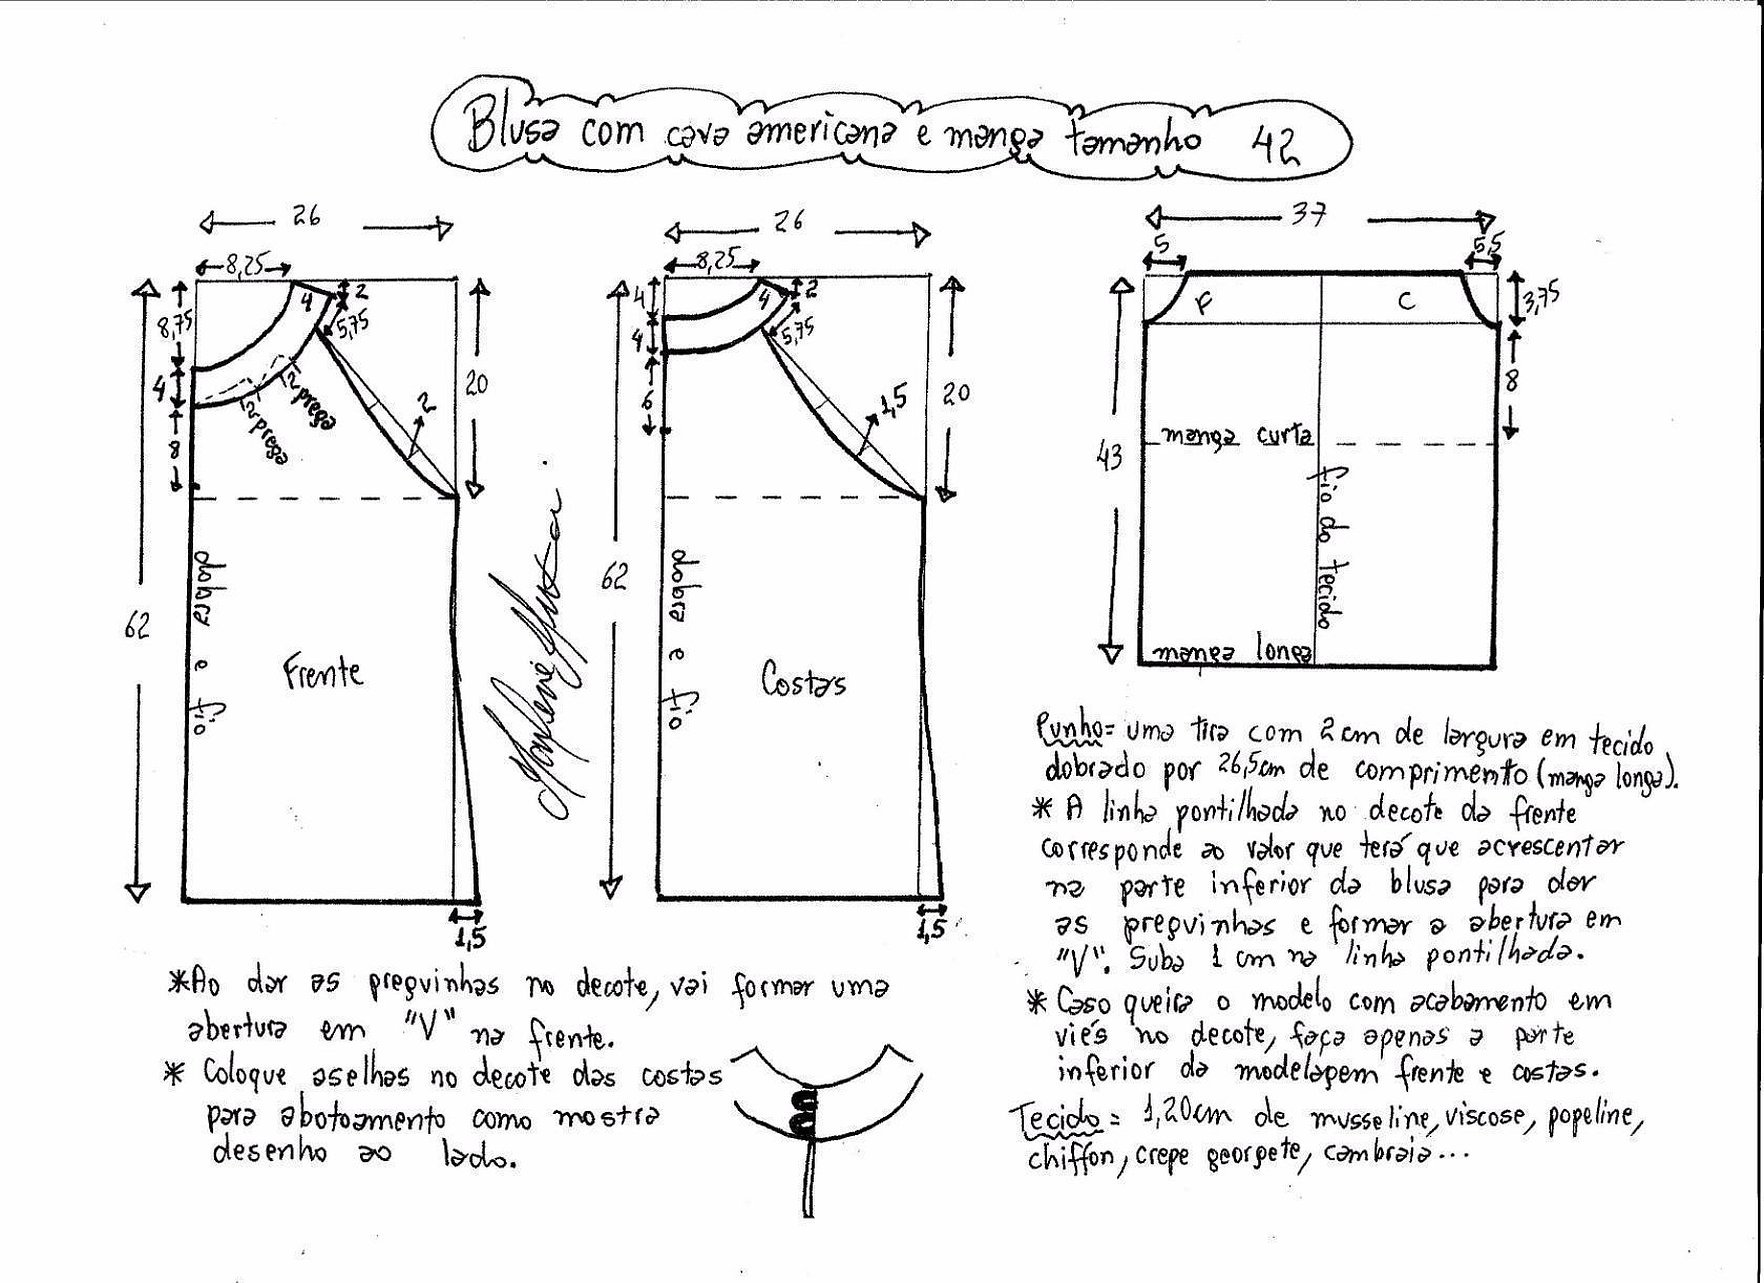 Blusa com cava americana e manga tamanho 42
26
8,25
2
4
5,75
8,75
4
8
2 prega
2 prega
2
20
62
dobra e fio
Frente
1,5
26
8,25
2
4
5,75
4
4
6
1,5
20
62
dobra e fio
Costas
1,5
37
5
5,5
F
C
3,75
8
43
manga curta
fio do tecido
manga longa
*Ao dar as preguinhas no decote, vai formar uma
abertura em "V" na frente.
* Coloque aselhas no decote das costas
para abotoamento como mostra
desenho ao lado.
Punho= uma tira com 2cm de largura em tecido
dobrado por 26,5cm de comprimento (manga longa).
* A linha pontilhada no decote da frente
corresponde ao valor que terá que acrescentar
na parte inferior da blusa para dar
as preguinhas e formar a abertura em
"V". Suba 1 cm na linha pontilhada.
* Caso queira o modelo com acabamento em
viés no decote, faça apenas a parte
inferior da modelagem frente e costas.
Tecido = 1,20cm de musseline, viscose, popeline,
chiffon, crepe georgete, cambraia...